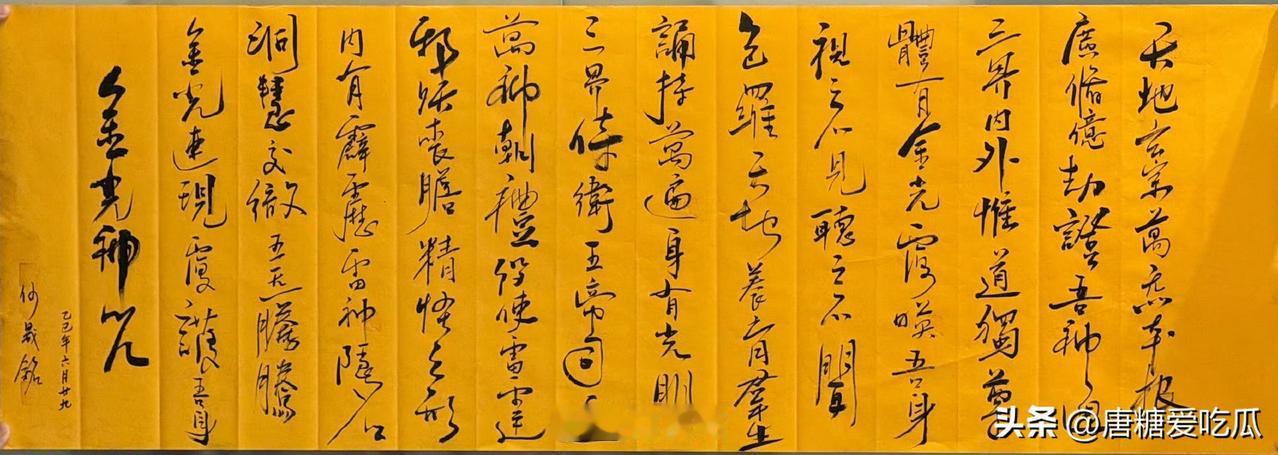 天地玄宗萬炁本根
廣脩億劫證吾神通
三界内外惟道獨尊
體有金光覆暎吾身
視之不見聽之不聞
包羅天地養育羣生
誦持萬遍身有光明
三界侍衛五帝司
萬神朝禮役使雷霆
邪妖喪膽精怪亡形
内有霹靂雷神隱名
洞慧交徹五炁騰騰
金光速現覆護吾身
金光神咒
乙巳年六月廿九
何晟銘
头条@唐糖爱吃瓜